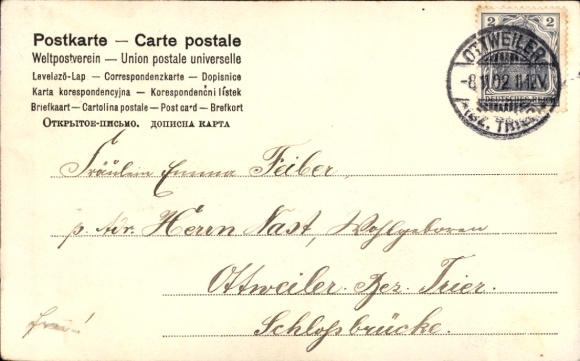 Postkarte — Carte postale
Weltpostverein — Union postale universelle
Levelező-Lap — Correspondenzkarte — Dopisnice
Karta korespondencyjna — Korespondenční lístek
Briefkaart — Cartolina postale — Post card — Brefkort
Открытое-письмо. дописна карта
2 2
DEUTSCHES REICH
OTTWEILER
-8.11.02.11-12V.
(BZ. TRIER)
Fräulein Emma Feiber,
p. Adr. Herrn Nast, Wohlgeboren
Ottweiler. Bez. Trier.
Schloßbrücke.